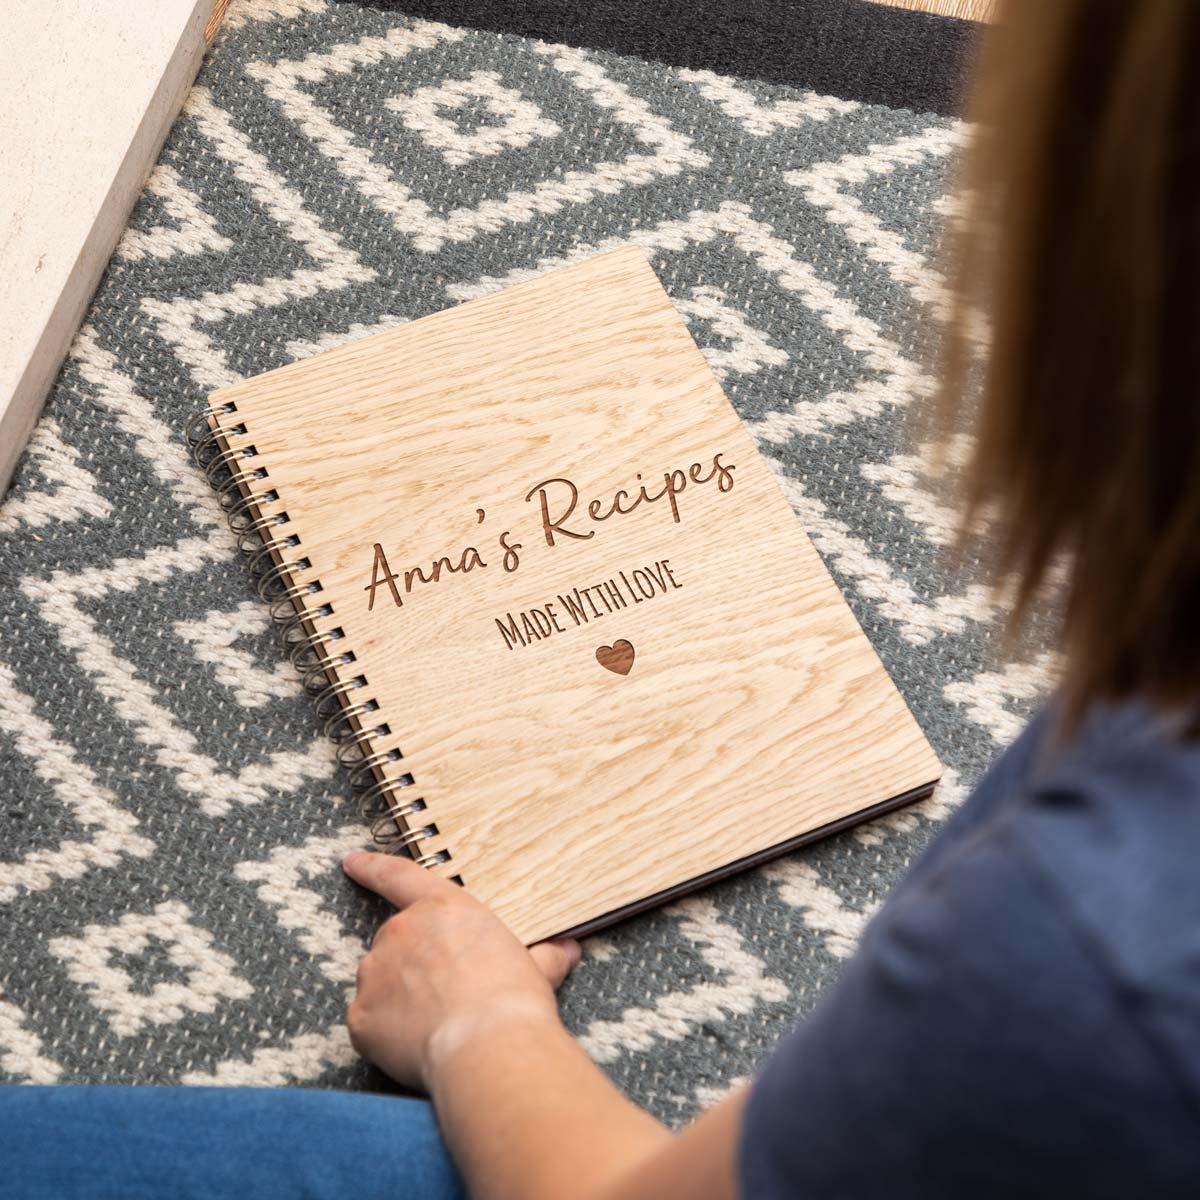 Anna's Recipes
Made With Love